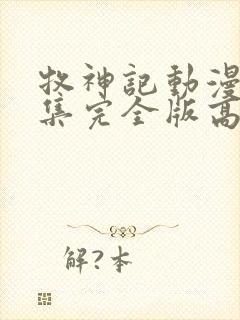 牧神記動漫
集完全版高
解?本